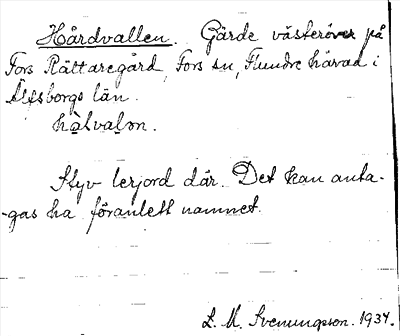 Hårdvallen. Gärde västeröver på
Fors Rättaregård, Fors sn, Flundre härad i
Älfsborgs län.
hàlvalon.
Styv lerjord där. Det kan anta-
-gas ha föranlett namnet.
L. M. Svenungsson. 1934.